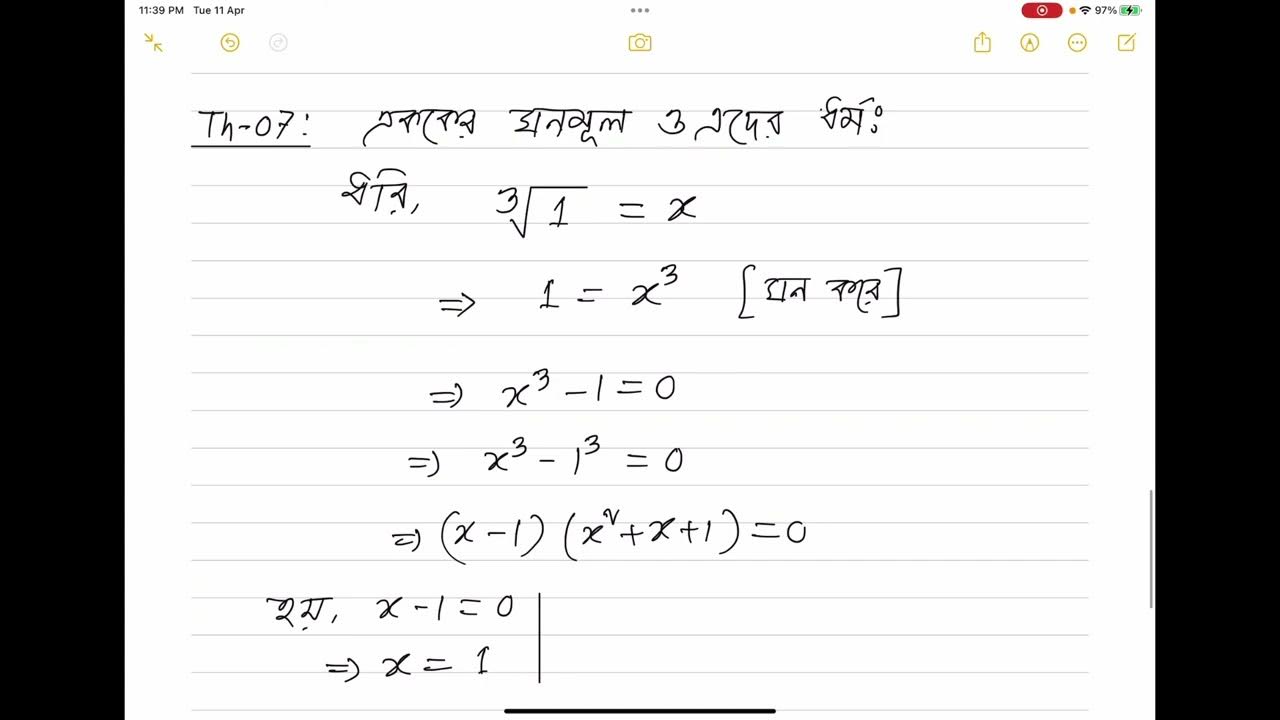 11:39 PM Tue 11 Apr 97%
Th-07: এককের ঘনমূল ও এদের ধর্মঃ
ধরি, ∛1 = x
⇒ 1 = x³ [ঘন করে]
⇒ x³ - 1 = 0
⇒ x³ - 1³ = 0
⇒ (x - 1) (x² + x + 1) = 0
হয়, x - 1 = 0
⇒ x = 1